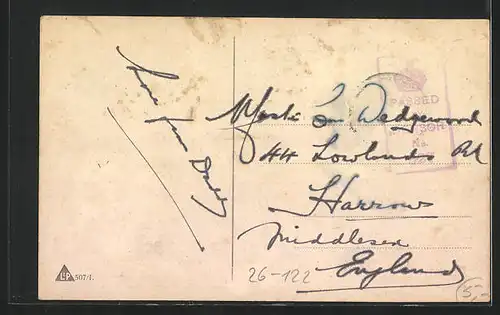 Love from Daddy
Mast. Ian Wedgewood
44 Lowlands Rd
Harrow
Middlesex
England
PASSED
CENSOR
No.
LP 507/I.
26-122
5,-